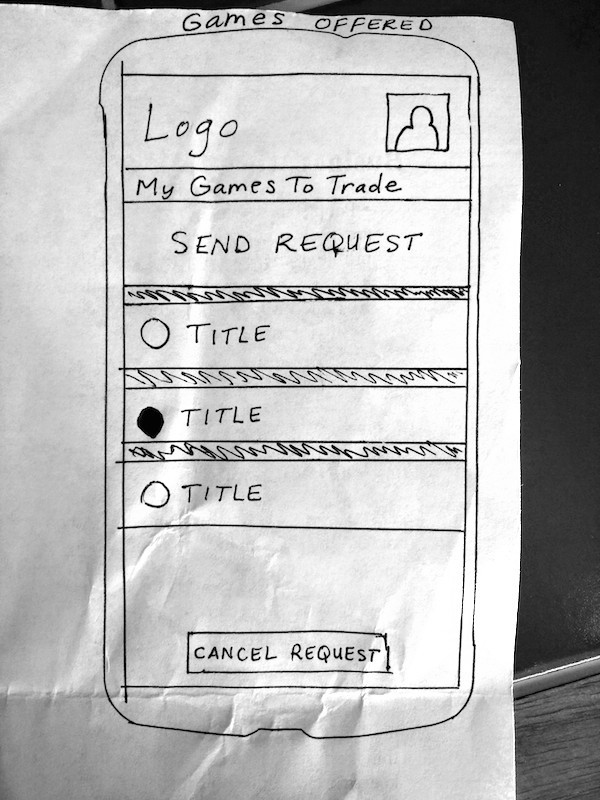 Games OFFERED
Logo
My Games To Trade
SEND REQUEST
TITLE
TITLE
TITLE
CANCEL REQUEST